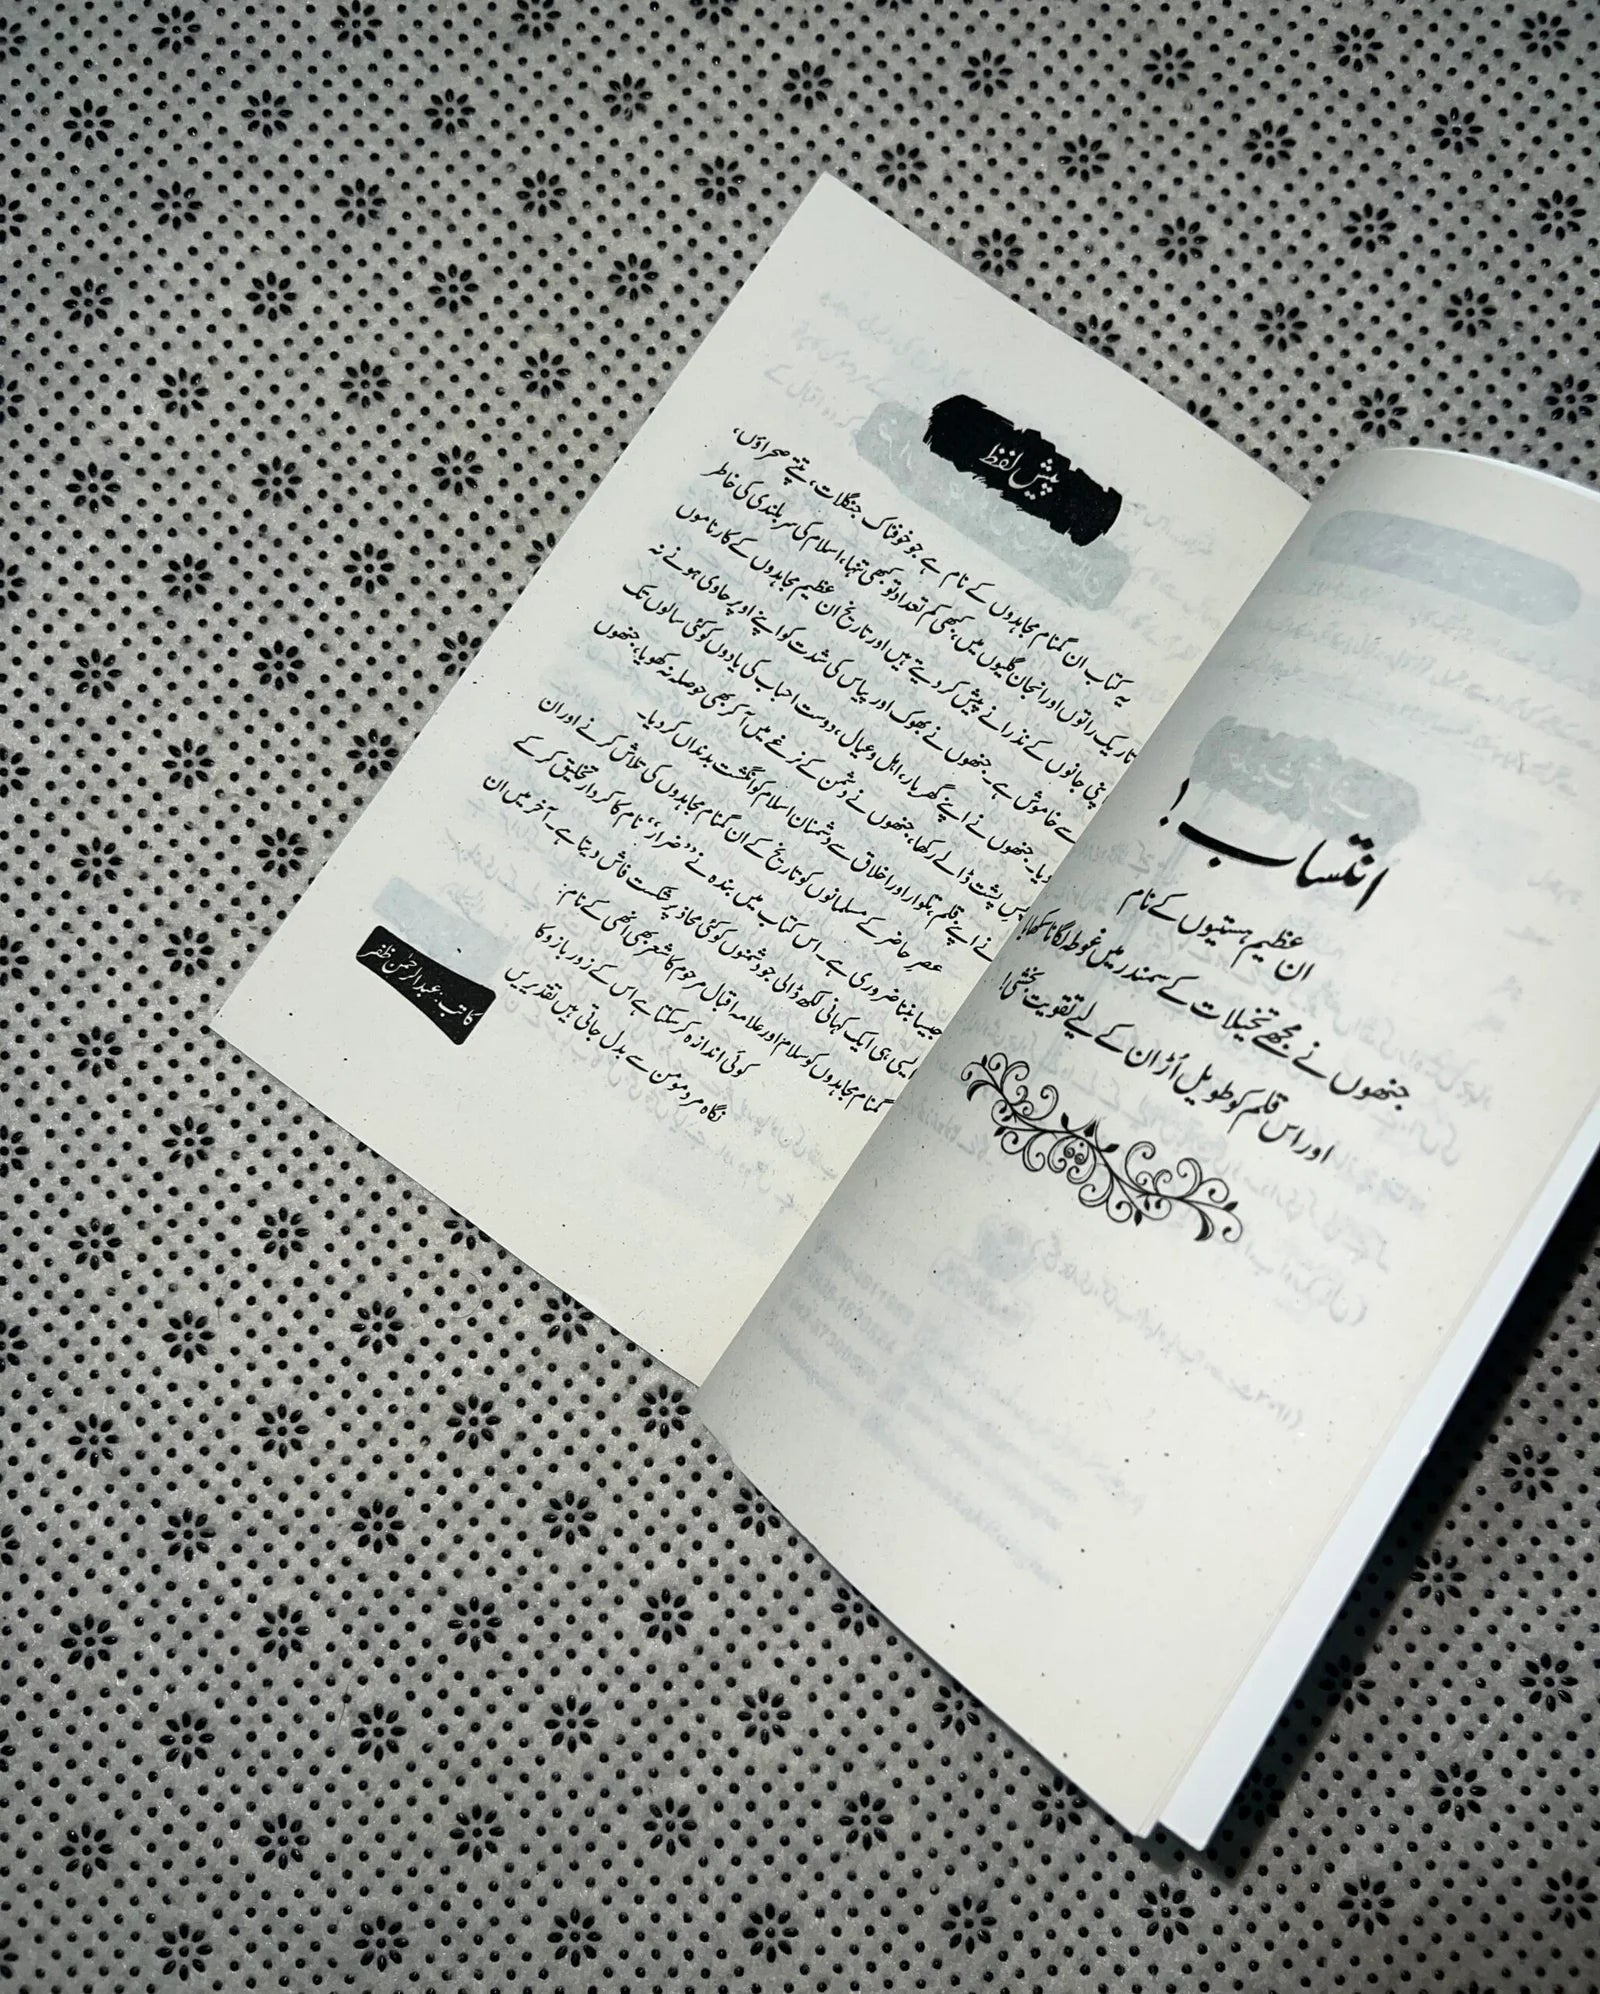 انتساب!
ان عظیم ہستیوں کے نام
جنھوں نے مجھے تخیلات کے سمندر میں غوطہ لگانا سکھایا
اور اس قلم کو طویل اُڑان کے لیے تقویت بخشی!
پیش لفظ
یہ کتاب ان گمنام مجاہدوں کے نام ہے جو خوفناک جنگلات، تپتے صحراؤں،
تاریک راتوں اور انجان گلیوں میں، کبھی کم تعداد تو کبھی تنہا، اسلام کی سربلندی کی خاطر
اپنی جانوں کے نذرانے پیش کر دیتے ہیں اور تاریخ ان عظیم مجاہدوں کے کارناموں
سے خاموش ہے۔ جنھوں نے بھوک اور پیاس کی شدت کو اپنے اوپر حاوی ہونے نہ
دیا۔ جنھوں نے اپنے گھر بار، اہل و عیال، دوست احباب کی یادوں کو کئی سالوں تک
پسِ پشت ڈالے رکھا، جنھوں نے دشمن کے نرغے میں آ کر بھی حوصلہ نہ کھویا، جنھوں
نے اپنے قلم، تلوار اور اخلاق سے دشمنانِ اسلام کو انگشت بدنداں کر دیا۔
عصرِ حاضر کے مسلمانوں کو تاریخ کے ان گمنام مجاہدوں کی تلاش کرنے اور ان
جیسا بننا ضروری ہے۔ اس کتاب میں بندہ نے ”ضرار“ نام کا کردار تخلیق کر کے
ایسی ہی ایک کہانی لکھ ڈالی جو دشمنوں کو کئی محاذ پر شکست فاش دیتا ہے۔ آخر میں ان
گمنام مجاہدوں کو سلام اور علامہ اقبال مرحوم کا شعر بھی انھی کے نام:
کوئی اندازہ کر سکتا ہے اس کے زورِ بازو کا
نگاہ مردِ مومن سے بدل جاتی ہیں تقدیریں
کاتب: عبدالرحمٰن ظفر